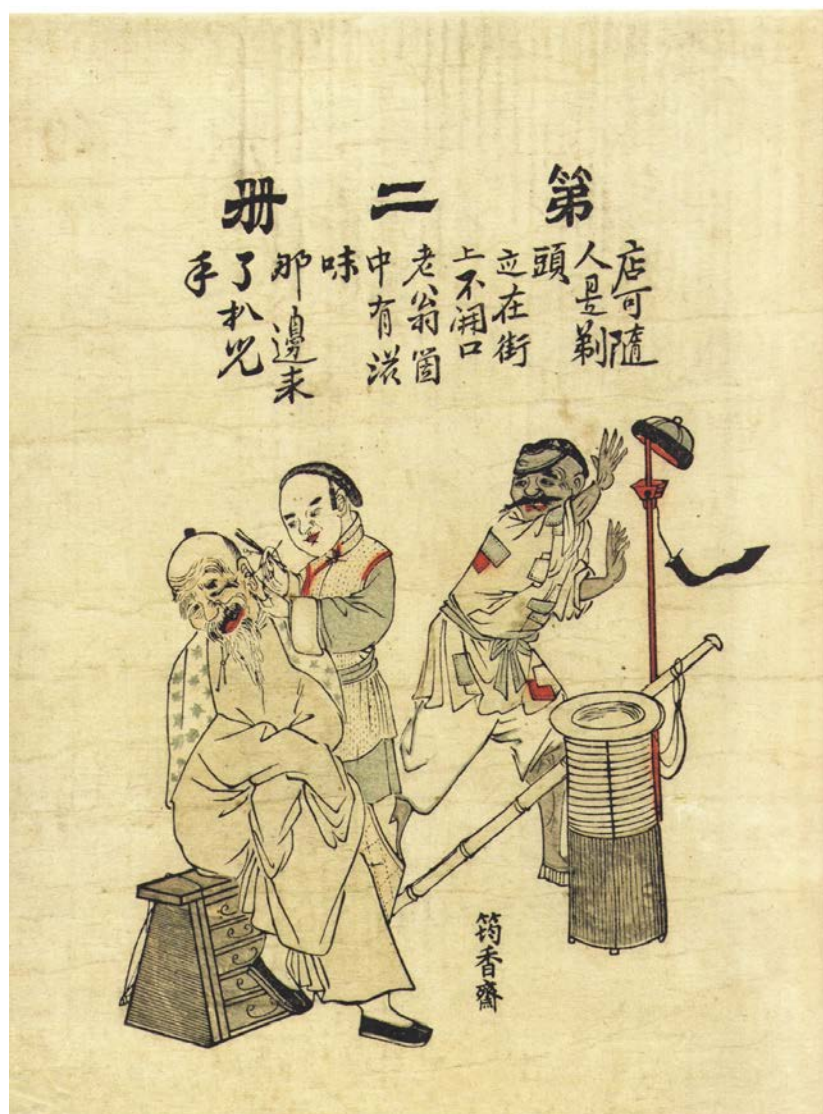 第二册
店可隨
人是剃
頭
立在街
上不開口
老翁箇
中有滋
味
那邊来
了扒兒
手
筠香齋